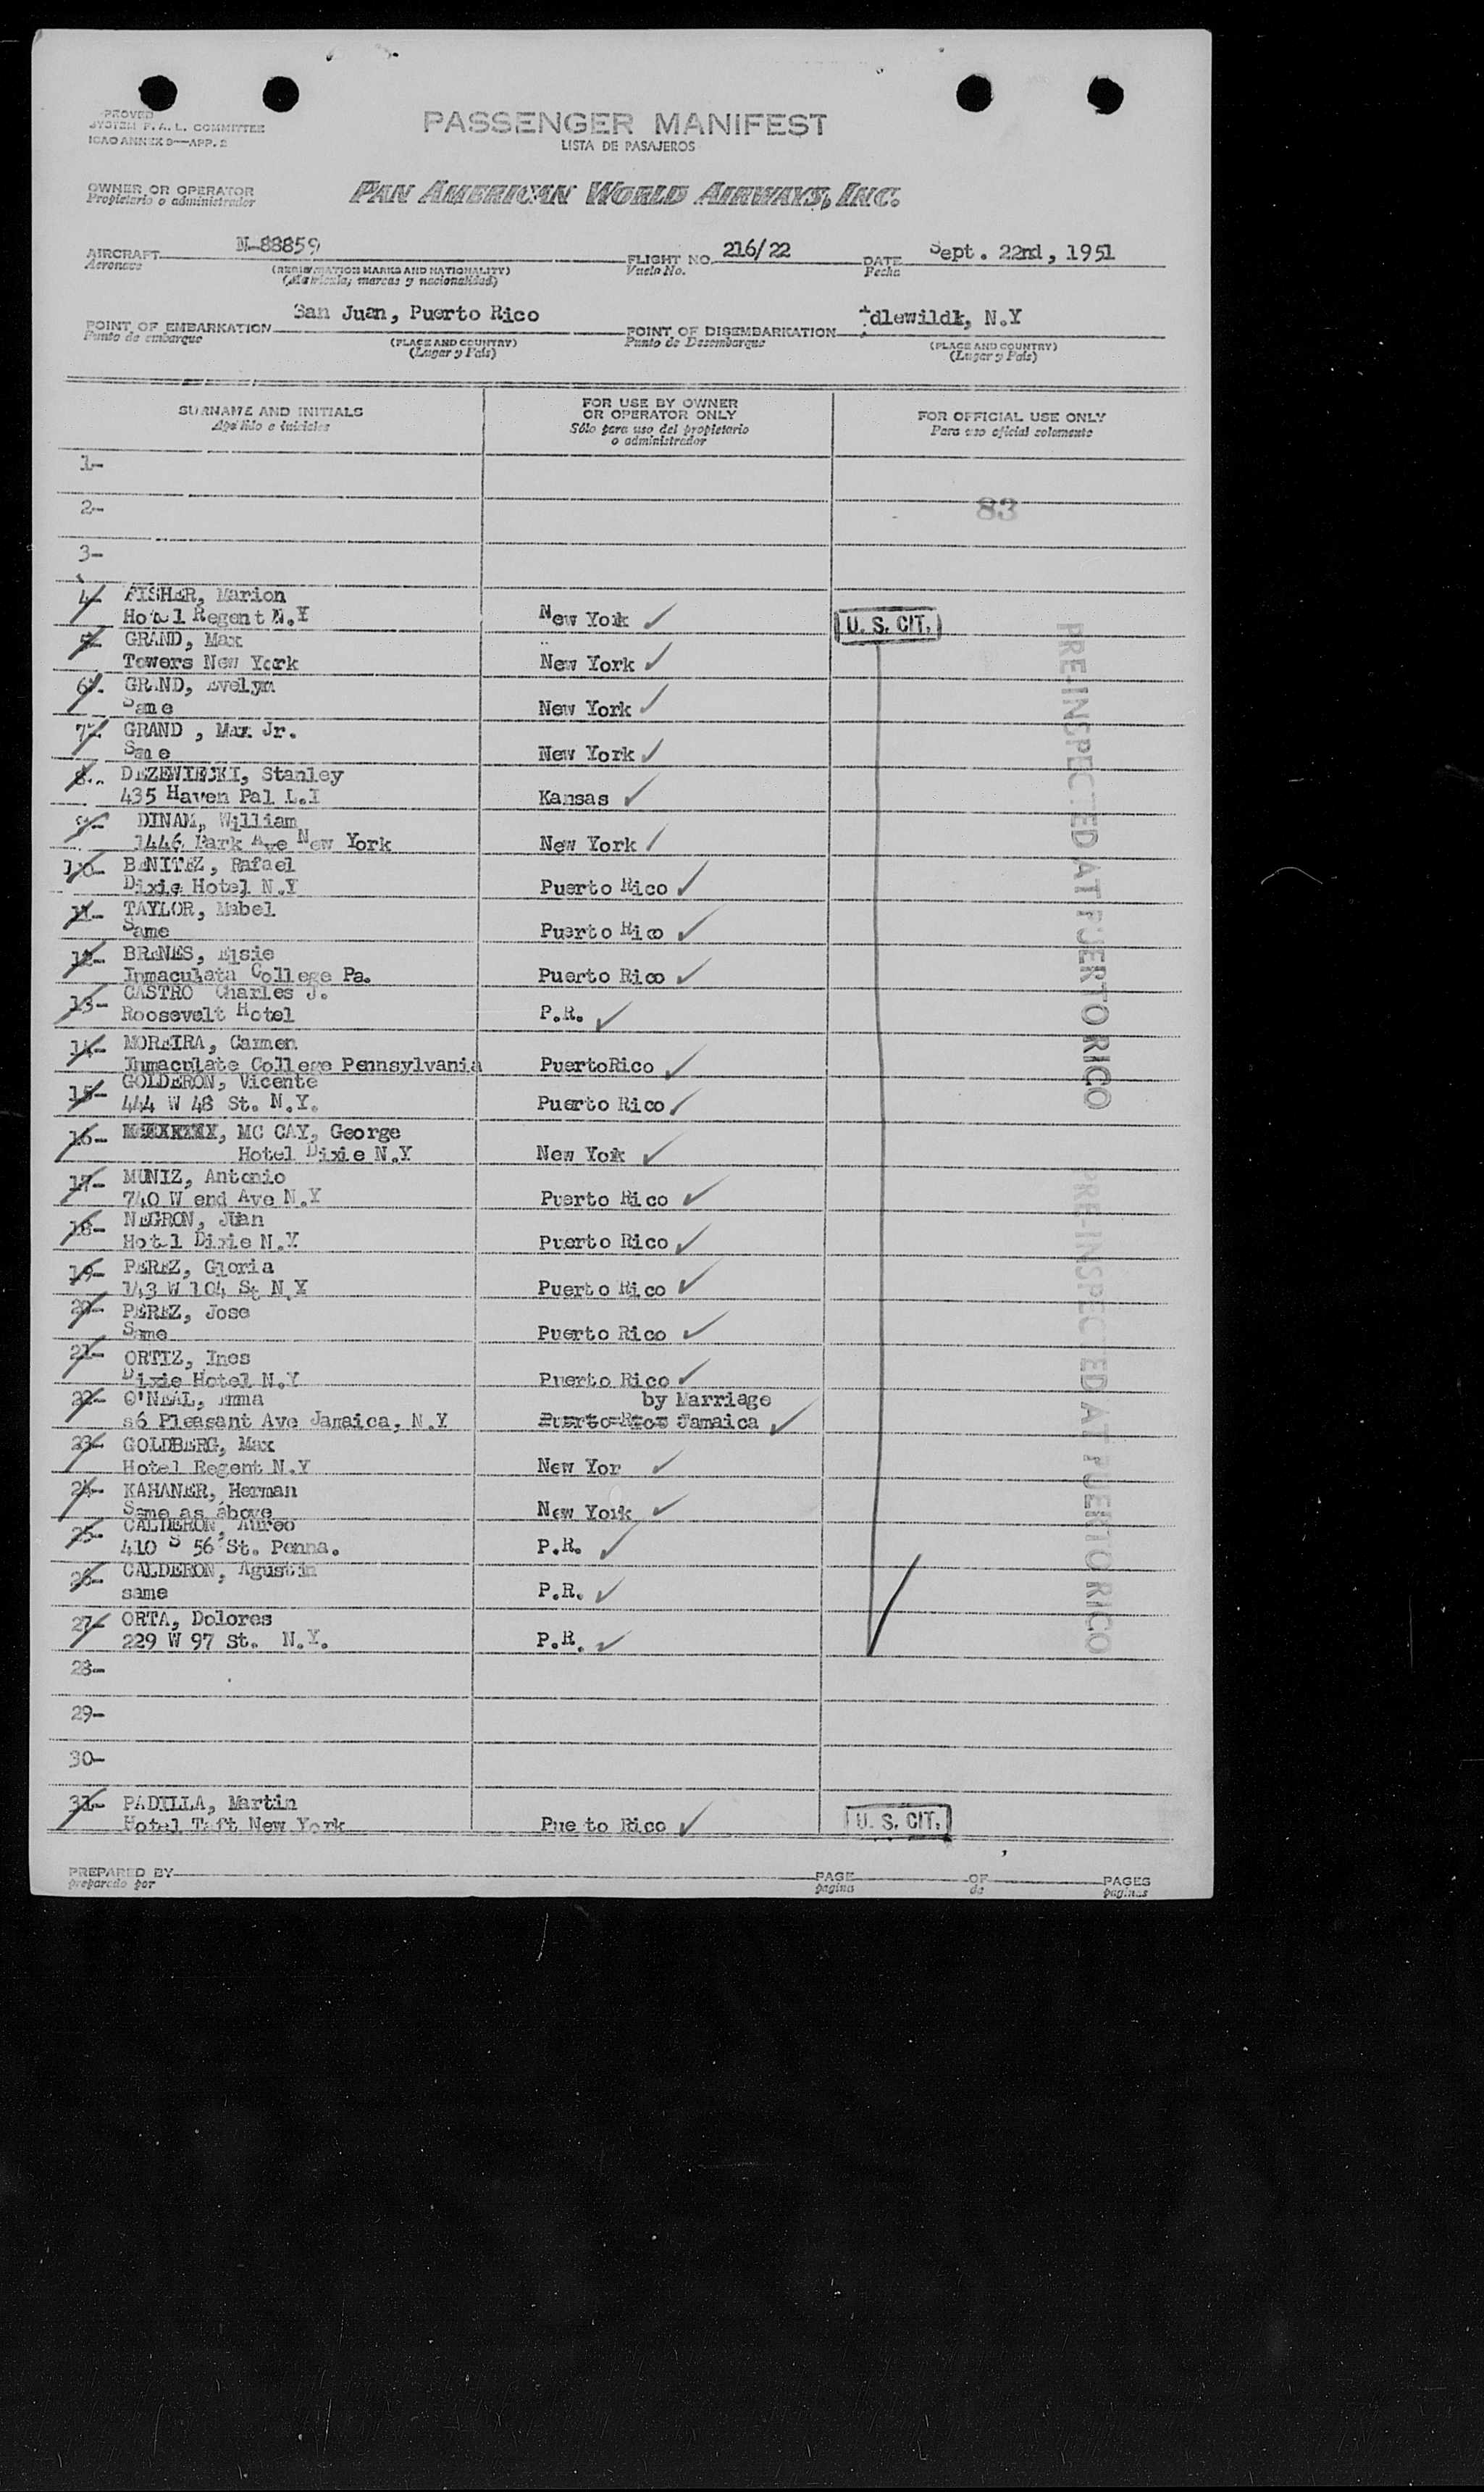 PROVED
SYSTEM F. A. L. COMMITTEE
ICAO ANNEX 9—APP. 2
PASSENGER MANIFEST
LISTA DE PASAJEROS
OWNER OR OPERATOR
Propietario o administrador
PAN AMERICAN WORLD AIRWAYS, INC.
AIRCRAFT N-88859 FLIGHT NO. 216/22 DATE Sept. 22nd, 1951
Aeronave (REGISTRATION MARKS AND NATIONALITY) Vuelo No. Fecha
(Matricula, marcas y nacionalidad)
POINT OF EMBARKATION San Juan, Puerto Rico POINT OF DISEMBARKATION Idlewildk, N.Y
Punto de embarque (PLACE AND COUNTRY) Punto de Desembarque (PLACE AND COUNTRY)
(Lugar y Pais) (Lugar y Pais)
SURNAME AND INITIALS
Apellido e iniciales
FOR USE BY OWNER
OR OPERATOR ONLY
Sólo para uso del propietario
o administrador
FOR OFFICIAL USE ONLY
Para uso oficial solamente
1-
2- 83
3-
4- FISHER, Marion
Hotel Regent N.Y New Yok ✓ U. S. CIT.
5- GRAND, Max
Towers New York New York ✓
6- GRAND, Evelyn
Same New York ✓
7- GRAND , Max Jr.
Same New York ✓
8- DEZEWIECKI, Stanley
435 Haven Pal L.I Kansas ✓
9- DINAM, William
1446 Park Ave New York New York ✓
10- BENITEZ, Rafael
Dixie Hotel N.Y Puerto Rico ✓
11- TAYLOR, Mabel
Same Puerto Rico ✓
12- BRENES, Elsie
Inmaculata College Pa. Puerto Rico ✓
13- CASTRO Charles J.
Roosevelt Hotel P.R. ✓
14- MOREIRA, Carmen
Inmaculate College Pennsylvania PuertoRico ✓
15- GOLDERON, Vicente
444 W 48 St. N.Y. Puerto Rico ✓
16- MC CAY, George
Hotel Dixie N.Y New Yok ✓
17- MUNIZ, Antonio
740 W end Ave N.Y Puerto Rico ✓
18- NEGRON, Juan
Hotel Dixie N.Y Puerto Rico ✓
19- PEREZ, Gloria
143 W 104 St N.Y Puerto Rico ✓
20- PEREZ, Jose
Same Puerto Rico ✓
21- ORTIZ, Ines
Dixie Hotel N.Y Puerto Rico ✓
22- O'NEAL, Emma by Marriage
86 Pleasant Ave Jamaica, N.Y Puerto Rico Jamaica ✓
23- GOLDBERG, Max
Hotel Regent N.Y New Yor ✓
24- KAHANER, Herman
Same as above New York ✓
25- CALDERON, Aureo
410 S 56 St. Penna. P.R. ✓
26- CALDERON, Agustin
same P.R. ✓
27- ORTA, Dolores
229 W 97 St. N.Y. P.R. ✓
28-
29-
30-
31- PADILLA, Martin
Hotel Taft New York Pue to Rico ✓ U. S. CIT.
PRE-INSPECTED AT PUERTO RICO
PRE-INSPECTED AT PUERTO RICO
PREPARED BY PAGE OF PAGES
preparado por pagina de paginas